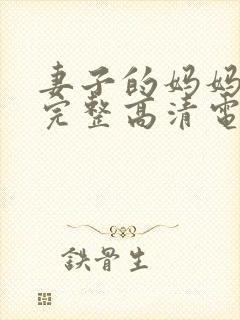 妻子的妈妈
完整高清电
鉄骨生